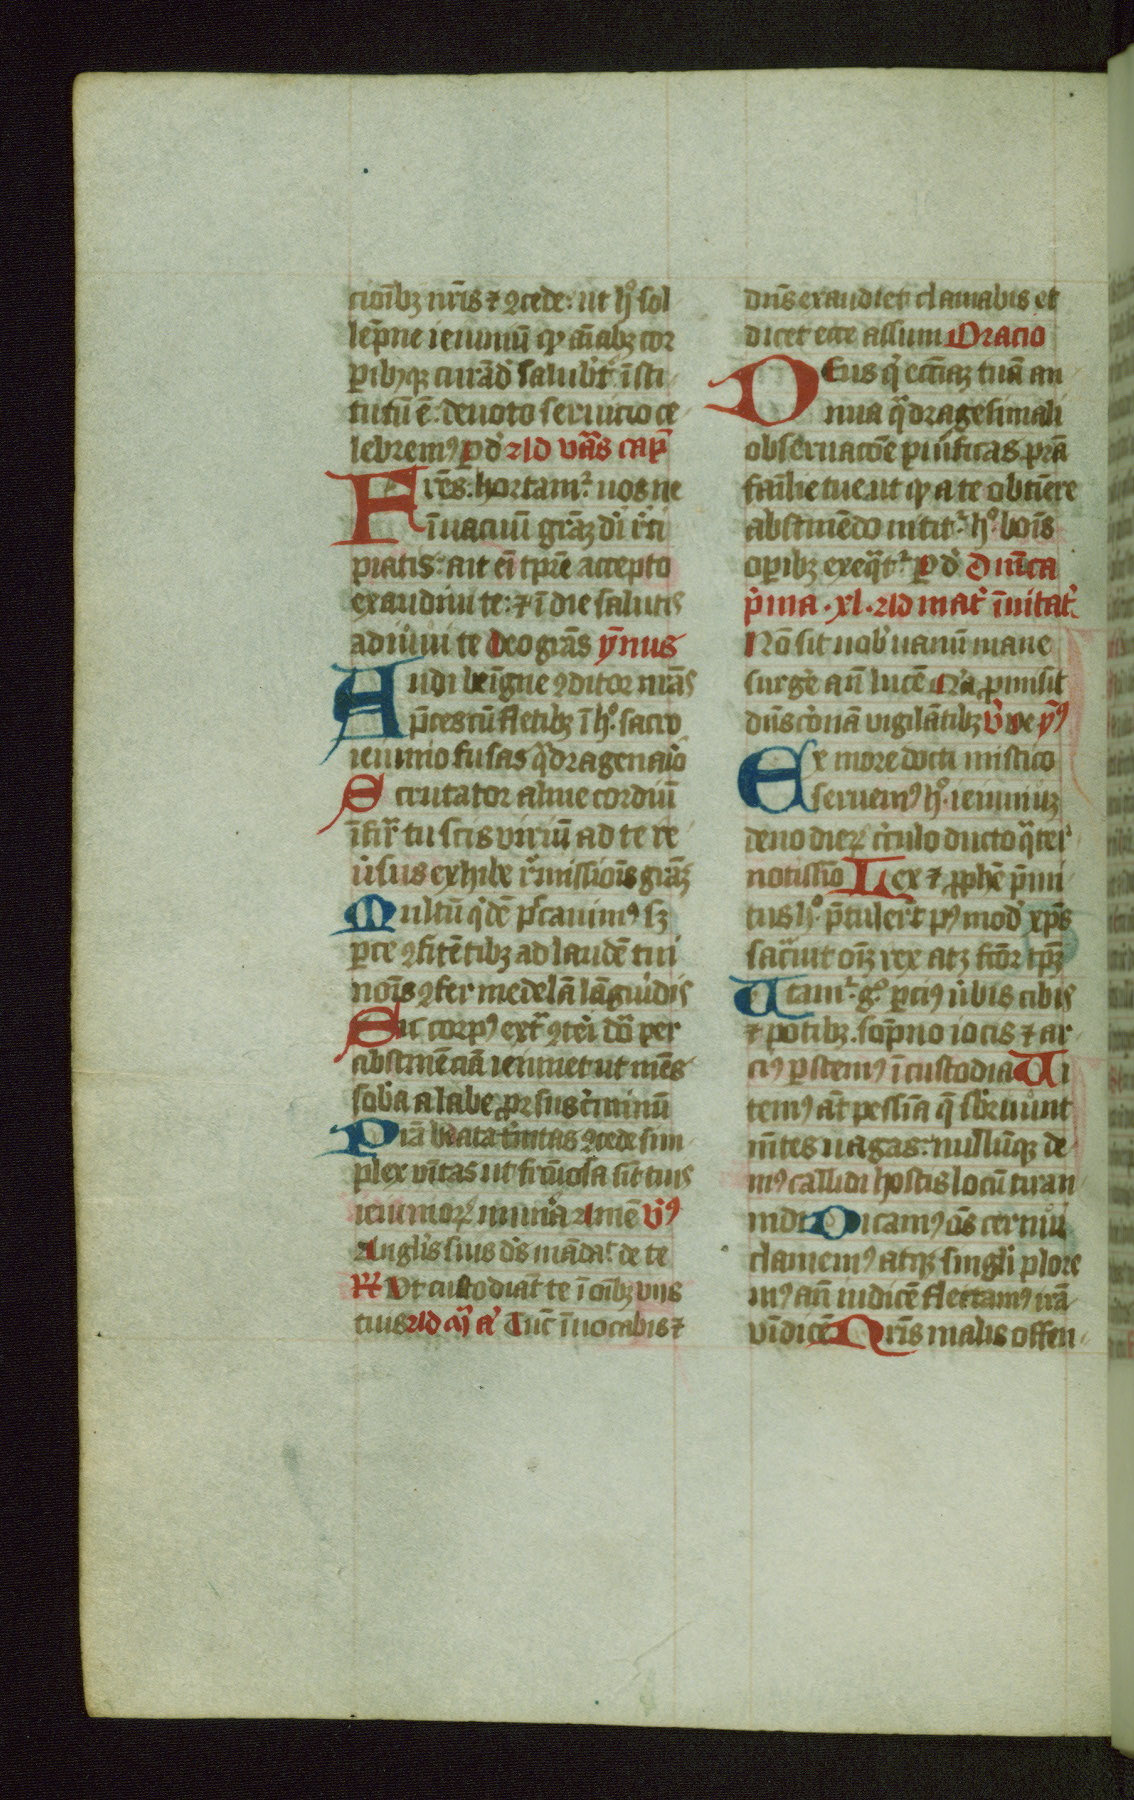 cionibꝫ nr̄is ⁊ ꝯcede: ut hͦ sol
lēpne ieiuniū qd̓ aīabꝫ cor
ꝑibꝰqꝫ curādꝭ salubrit̓ īsti
tutū ē: deuoto seruicio ce
lebremꝰ ꝑ d̓ Ad vꝑas cap̄
Frēs. hortamᷣ uos ne
ī uacuū grāꝫ dī rͨi
piatis: ait eī tp̄re accepto
exaudiui te: ⁊ ī die salutis
adiuui te Deo grās ȳnus
Audi beīgne ꝯditor nrās
p̄ces cū fletibꝫ ī hͦ. sacro
ieiunio fusas qͣdragenaīo
Scrutator alme cordiū
īfir̄ tu scis viriū ad te re
ūsus exhibe rͤmissiōis grāꝫ
Multū qͥdē pͨcauimꝰ sꝫ
ꝑce ꝯfitētibꝫ ad laudē tui
noīs ꝯfer medelā lāguidis
Sic corpꝰ extͣ ꝯteri dō per
abstinēciā ieiunet ut mēs
sobͥa a labe ꝓrsus cͥminū
Pͬā beata tͥnitas ꝯcede sim
plex vīitas ut fructuosa sīt tuis
ieiuniorꝝ munͣa Amē V̓ꝰ
Anglis suis dꝰs mādaᷣ. de te
RꝶVt custodiāt te ī oībꝫ viis
tuis Ad mͣ aͣ Tūc īuocabis ⁊
dn̄s exaudiet clamabis et
dicet ecce assum Oracio
Deus qͥ ecc̄iaꝫ tuā an
nua qͣdragesimali
obseruacōe purificas pr̄a
familie tue ut qd̓ a te obtinēre
abstinēdo nititᷣ. hͦ. bonis
oꝑibꝫ exeqͣtᷣ ꝑ d̓ Dnīca
pͥma. xl. Ad matᷣ īuitatᷣ
Nō sit uobꝭ uanū mane
surge̓ an̄ lucē Qͥa ꝓmisit
dn̄s coronā vigilātibꝫ V̓ ve ȳꝰ
Ex more docti mistico
seruemꝰ hͦ. ieiuniuꝫ
deno dierꝝ cͥrculo ducto qͣter
notissīo Lex ⁊ ꝓphē pͥmi
tus hͦ. p̄tulert̄ pꝰmodꝭ xp̄s
sacͣuit oīꝫ rex atqꝫ fc̄or tp̄ꝫ
Utamᷣ. gͦ. ꝑciꝰ ūbis cibis
⁊ potibꝫ. sōpno iocis ⁊ ar
ciꝰ ꝑstemꝰ ī custodia Ui
temꝰ at̄ pessīa q̄ sb̓ruunt
mētes uagas: nullūqꝫ de
mꝰ callidi hostis locū tiran
nidi Dicamꝰ oēs cernui
clamemꝰ atqꝫ singli plore
mꝰ an̄ iudicē flectamꝰ irā
vīdicē Nrīs malis offen